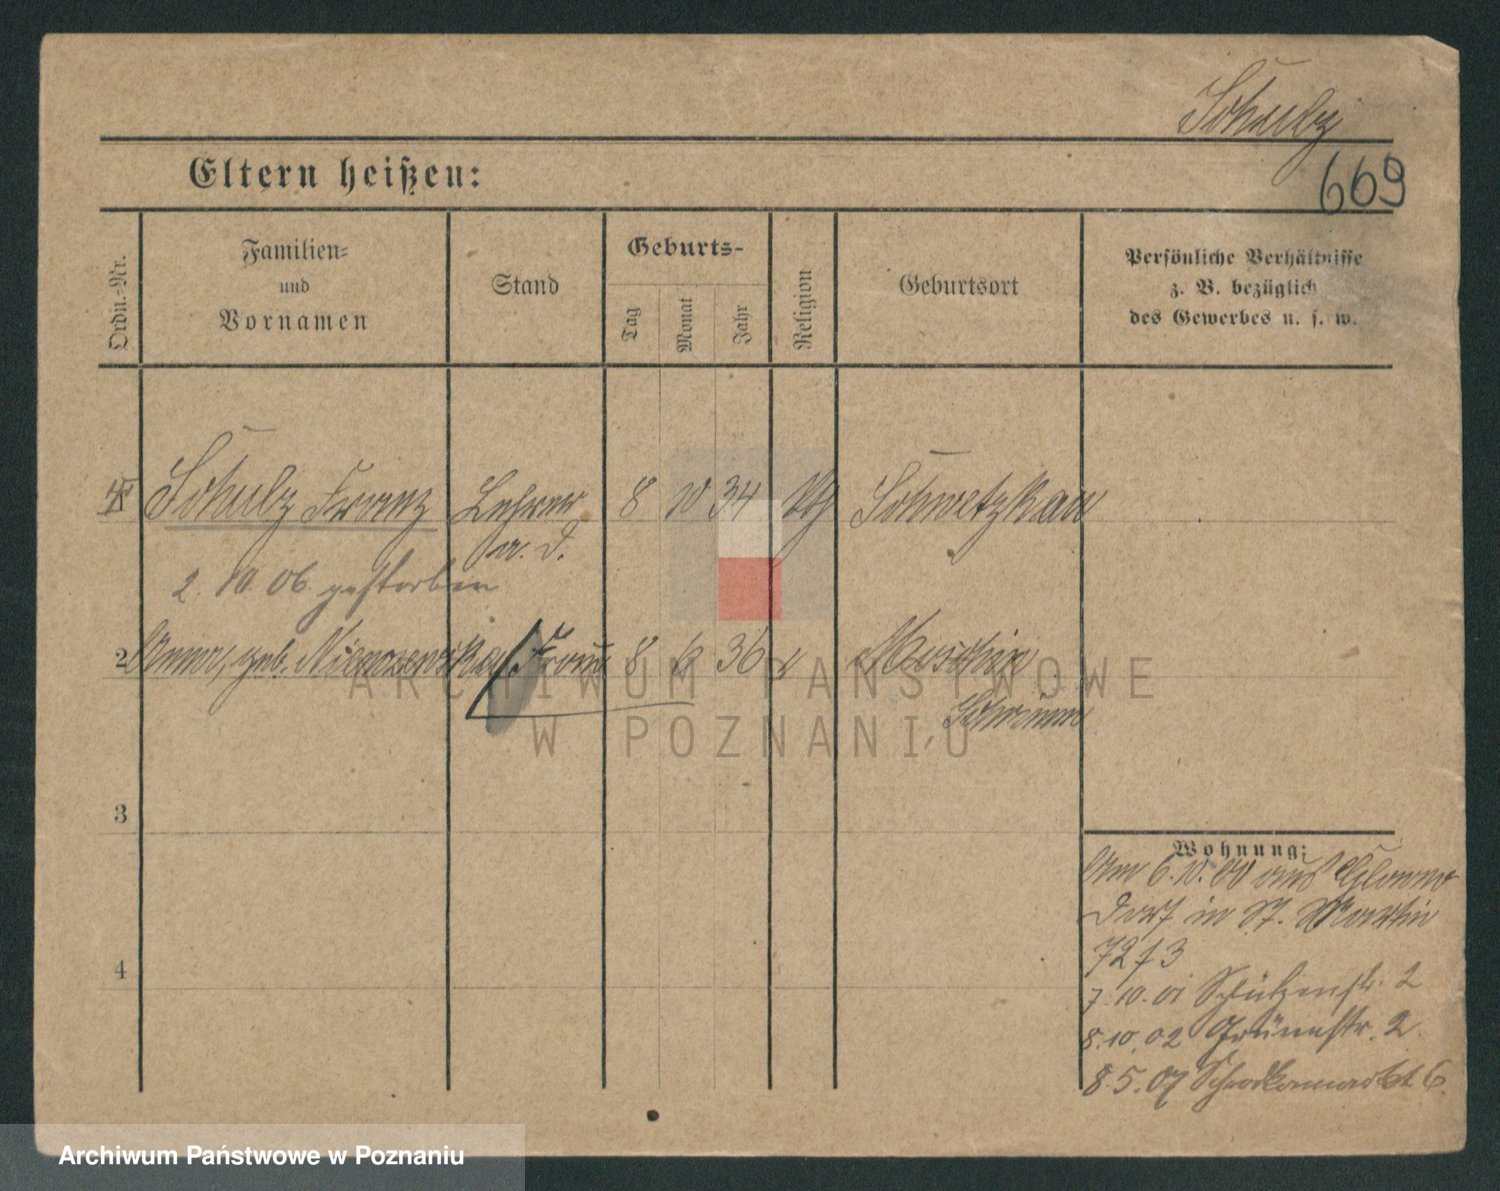 Schulz
669
Eltern heißen:
Ordn.-Nr.
Familien-
und
Vornamen
Stand
Geburts-
Tag
Monat
Jahr
Religion
Geburtsort
Persönliche Verhältnisse
z. B. bezüglich
des Gewerbes u. s. w.
1 Schulz Franz Lehrer 8 10 34 Schwetzkau
a. D.
2. 10. 06. gestorben
2 Anna, geb. Frau 8 6 36 Moschin
Schrimm
3
4
Wohnung:
Am 6.10.00 aus
Dorf in St. Martin
72 f 3
7.10.01 Schützenstr. 2
8.10.02 Grünestr. 2.
8.5.07 6.
ARCHIWUM PAŃSTWOWE
W POZNANIU
Archiwum Państwowe w Poznaniu